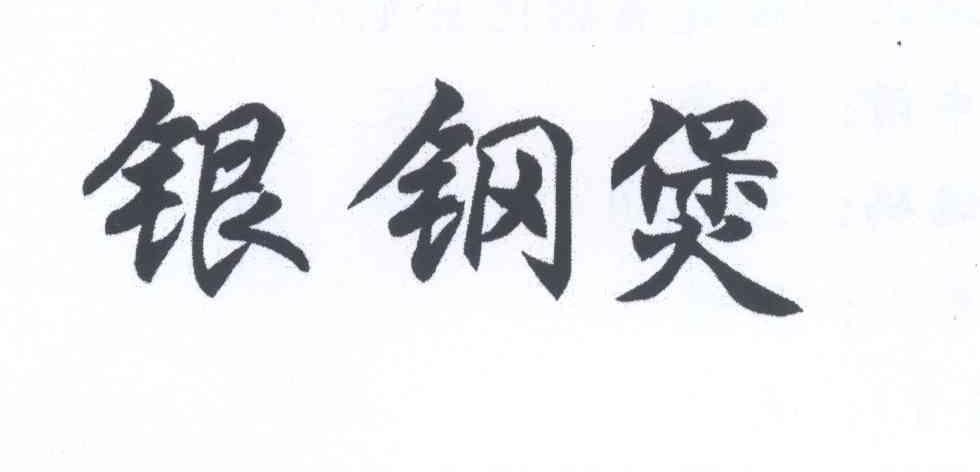 银钢煲